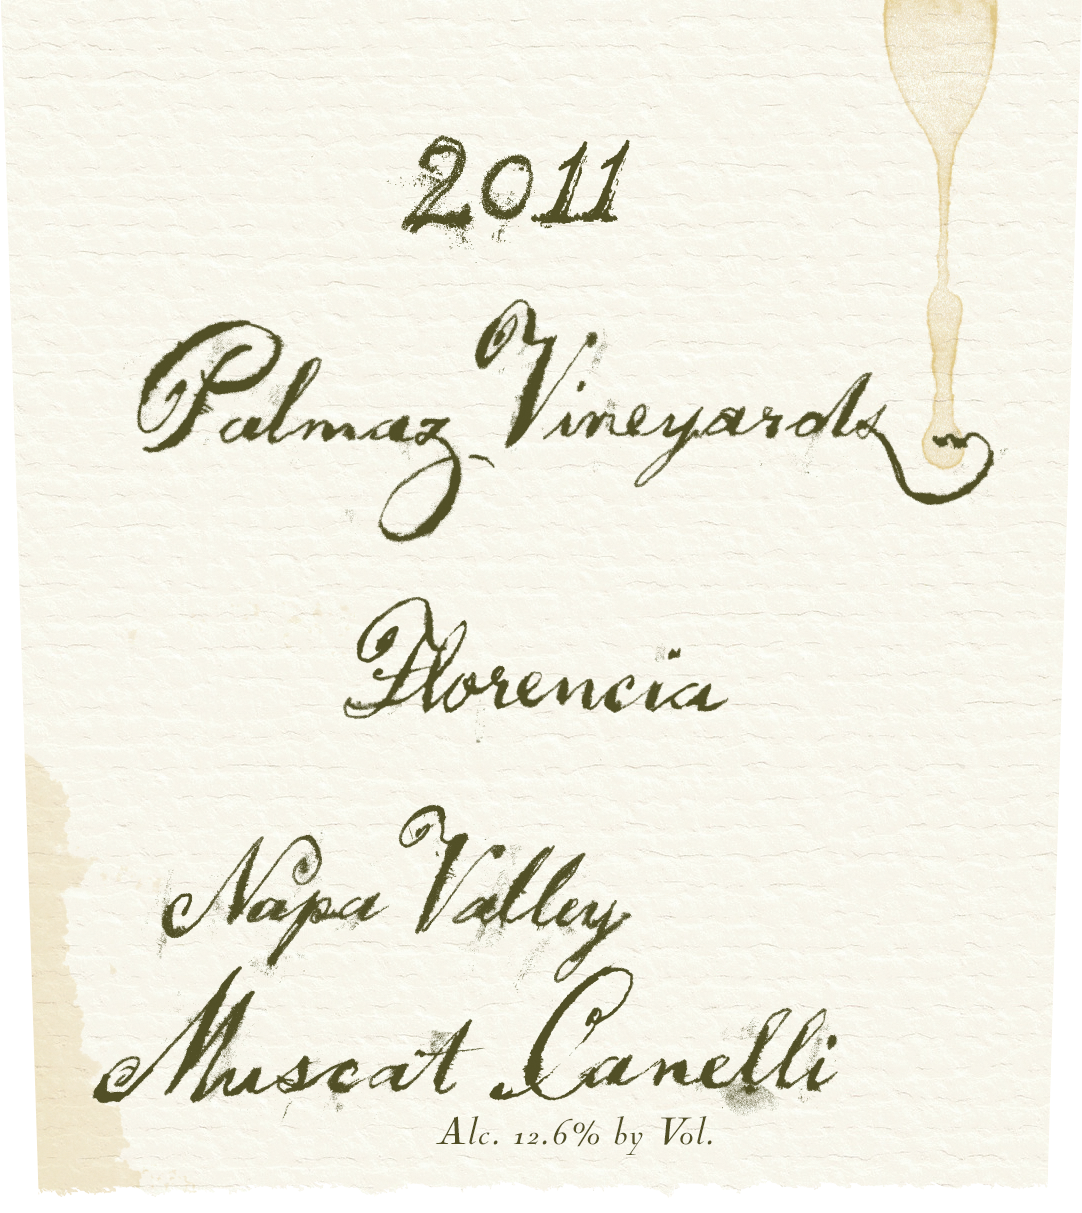 2011
Palmaz Vineyards
Florencia
Napa Valley
Muscat Canelli
Alc. 12.6% by Vol.